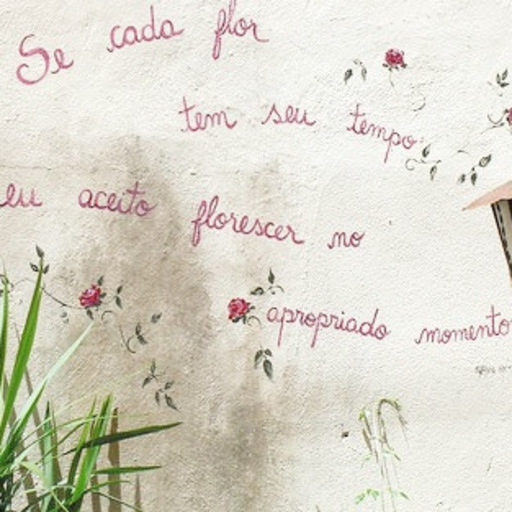 Se cada flor
tem seu tempo
eu aceito florescer no
apropriado momento